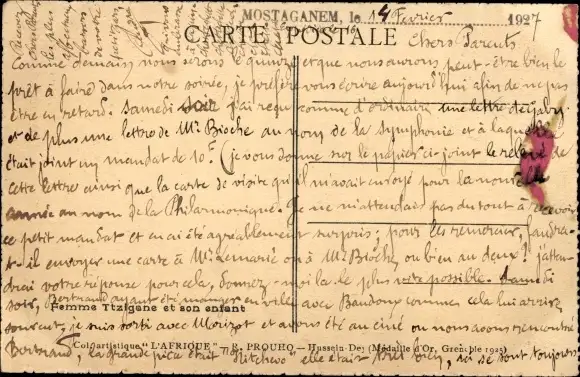 MOSTAGANEM, le 14 Février 1927
CARTE POSTALE
Chers Parents
Comme demain, nous serons et que nous aurons peut-être bien le
prêt à faire dans notre soirée, je préfère vous écrire aujourd'hui afin de ne pas
être en retard. Samedi soir j'ai reçu comme d'ordinaire une lettre de
et de plus une lettre de Mr Bioche au nom de la Symphonie et à laquelle
était joint un mandat de 10f. (je vous donne sur le papier ci-joint le relevé de
cette lettre ainsi que la carte de visite qu'il m'avait envoyé pour la nouvelle
année au nom de la Philarmonique. Je ne m'attendais pas du tout à recevoir
ce petit mandat et en ai été agréablement surpris; pour les remercier, faudra-
t-il envoyer une carte à Mr Lemarié ou à Mr Bioche ou bien au deux? j'atten-
drai votre réponse pour cela, donnez-moi la le plus vite possible. Samedi
soir, Bertrand ayant été manger en ville avec Baudoux comme cela lui arrive
Femme Tzigane et son enfant
souvent, je suis sorti avec Morizot et avons été au ciné où nous avons rencontré
Bertrand, la grande pièce était "Kitchevo" elle était très
Col. artistique "L'AFRIQUE" - R. PROUHO - Hussein-Dey (Médaille d'Or, Grenoble 1925)